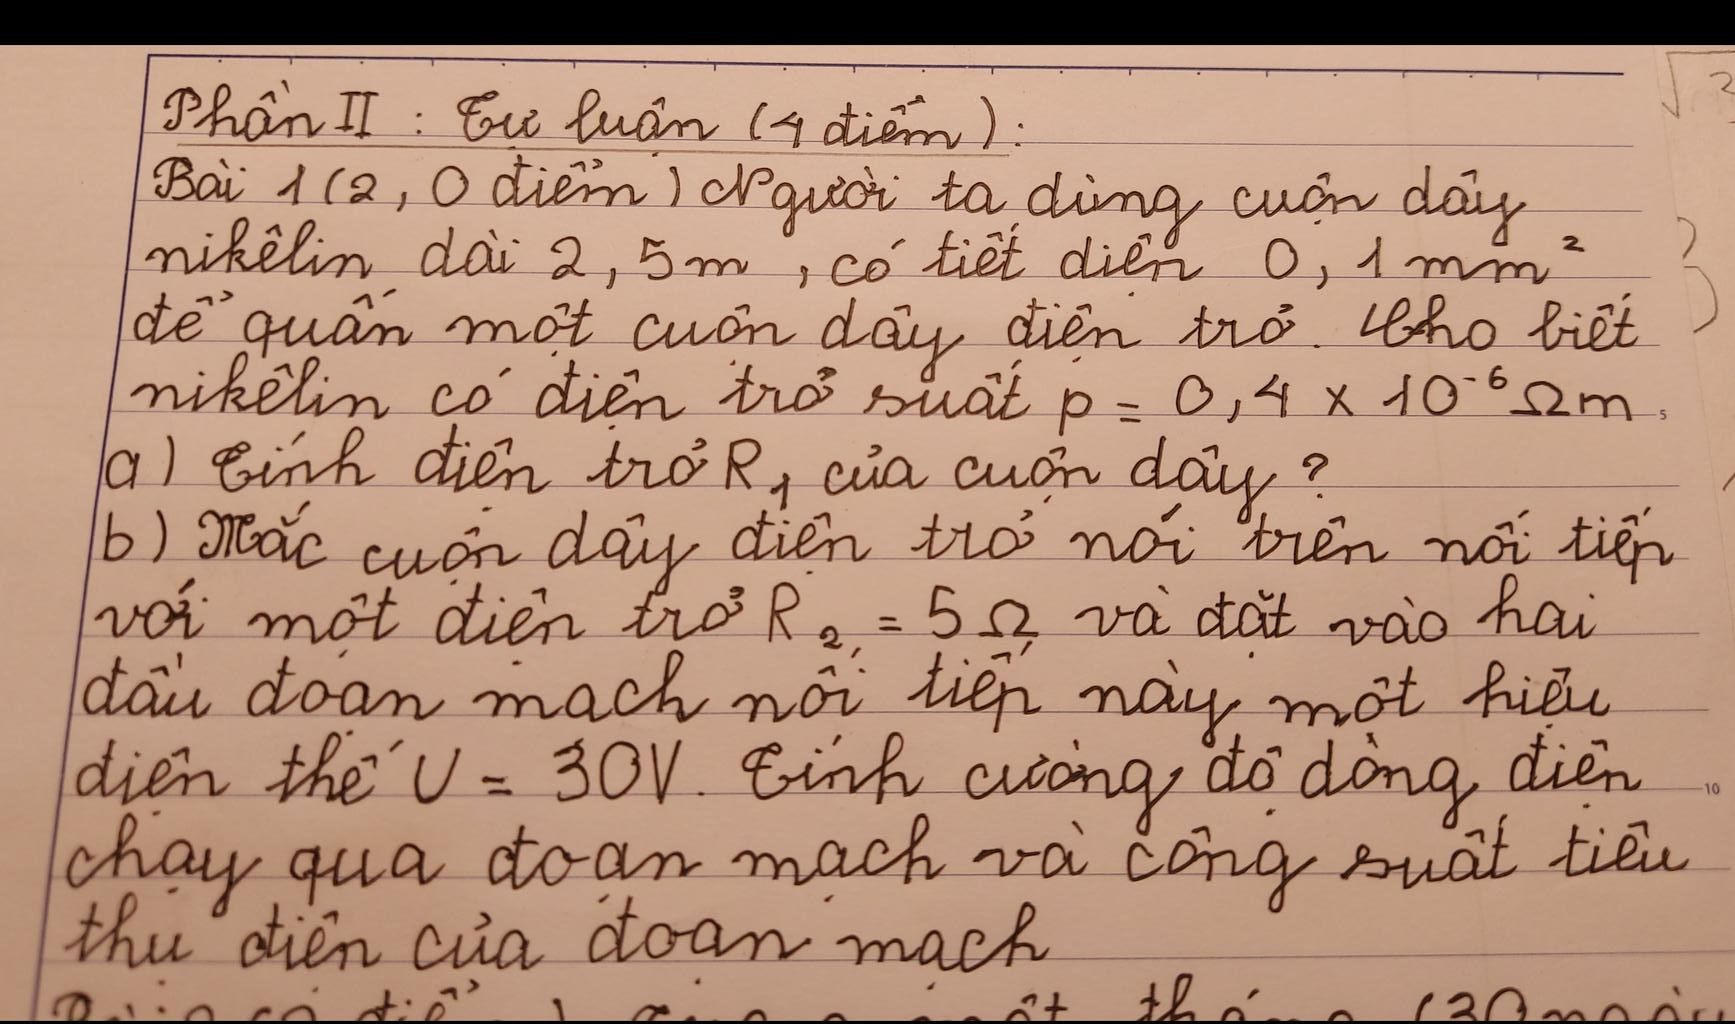 Phần II : Tự luận (4 điểm) :
Bài 1 (2, 0 điểm) Người ta dùng cuộn dây
nikêlin dài 2, 5m , có tiết diện 0, 1 mm²
để quấn một cuộn dây điện trở. Cho biết
nikêlin có điện trở suất p = 0,4 x 10⁻⁶ Ωm
5
a) Tính điện trở R₁ của cuộn dây ?
b) Mắc cuộn dây điện trở nói trên nối tiếp
với một điện trở R₂ = 5Ω và đặt vào hai
đầu đoạn mạch nối tiếp này một hiệu
điện thế U = 30V. Tính cường độ dòng điện
10
chạy qua đoạn mạch và công suất tiêu
thụ điện của đoạn mạch